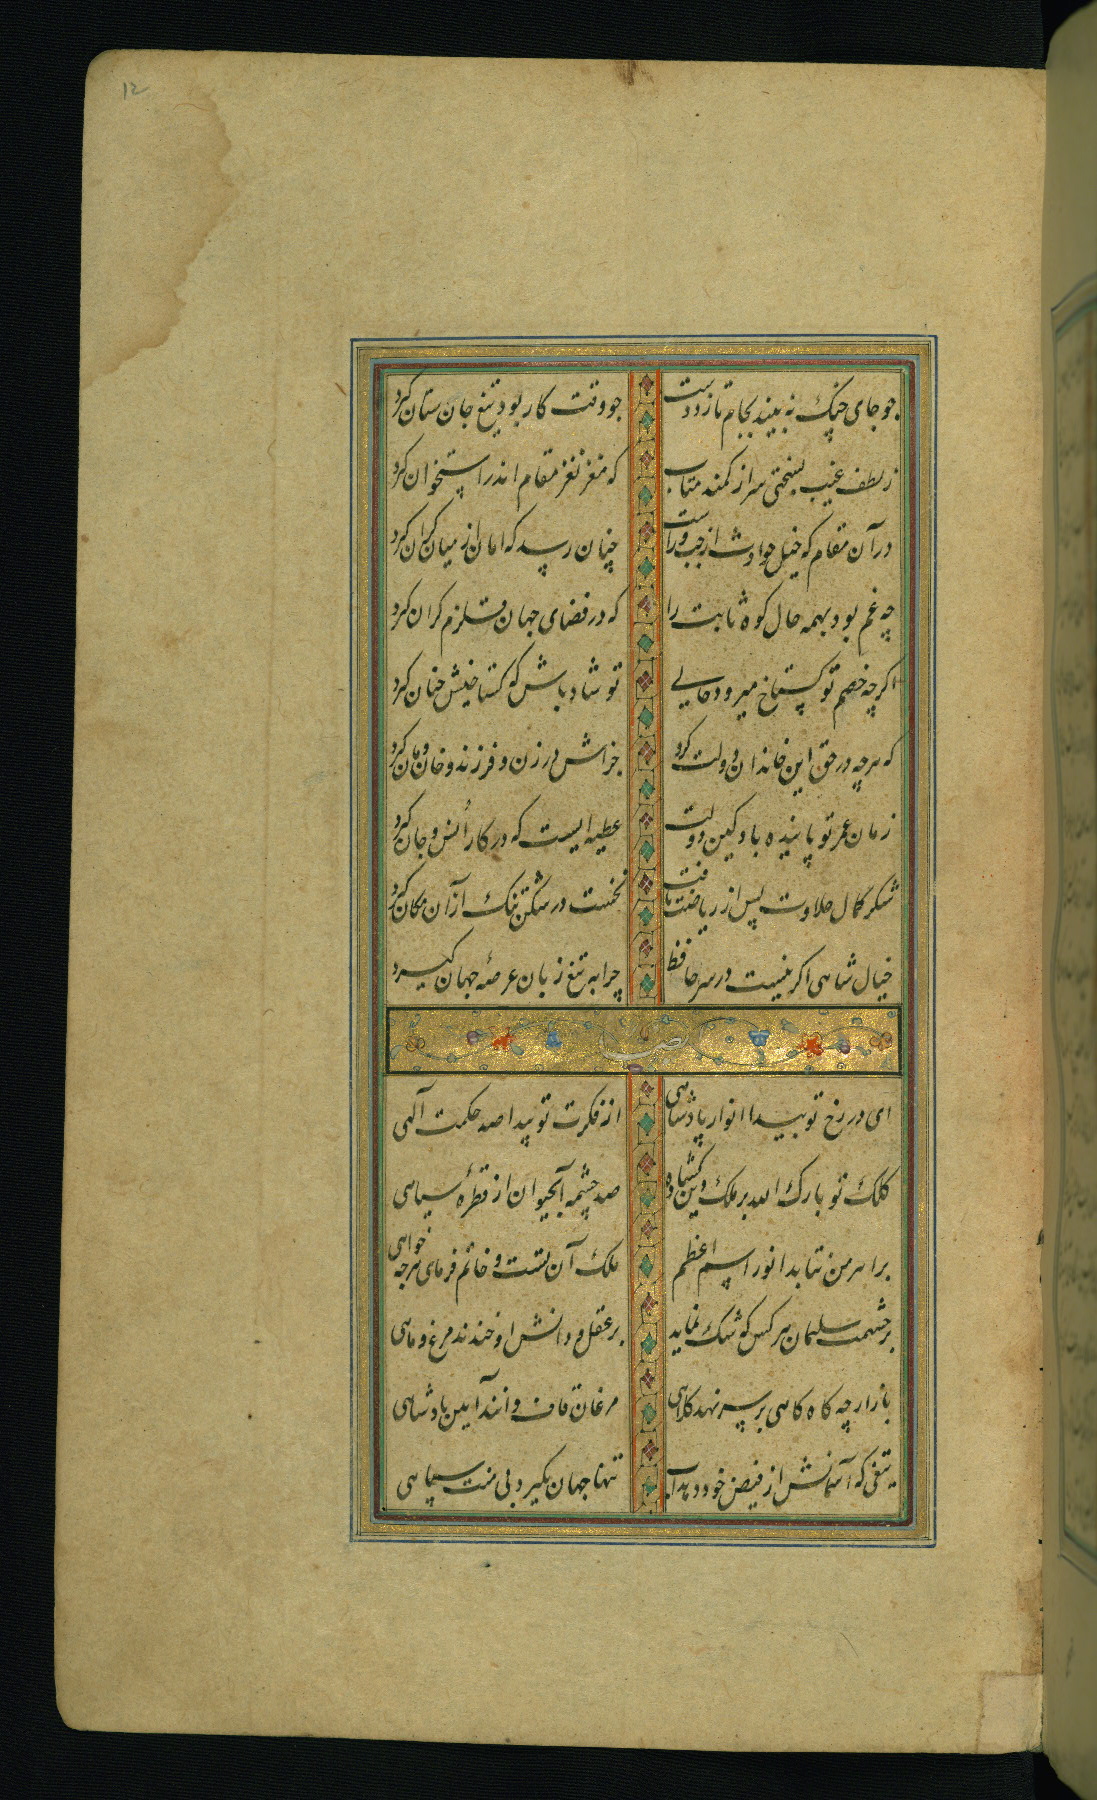 12
چو جای جنگ نه بیند بجام تازد دست
چو وقت کار بود تیغ جان ستان گیرد
ز لطف غیب بسختی سر از کمند متاب
که مغز نغز مقام اندر استخوان گیرد
در آن مقام که خیل حوادث از چپ و راست
چنان رسد که امان از میان کران گیرد
چه غم بود بهمه حال کوه ثابت را
که در فضای جهان قلزم کران گیرد
اگرچه خصم تو گستاخ میرود حالی
تو شاد باش که گستاخیش چنان گیرد
که هرچه در حق این خاندان دولت کرد
جزاش در زن و فرزند و خان و مان گیرد
زمان عمر تو پاینده باد کین دولت
عطیه ایست که در کار انس و جان گیرد
شکر کمال حلاوت پس از ریاضت یافت
نخست در شکن تنگ از آن مکان گیرد
خیال شاهی اگر نیست در سر حافظ
چرا به تیغ زبان عرصه جهان گیرد
ای در رخ تو پیدا انوار پادشاهی
از فکرت تو پیدا صد حکمت آلهی
کلک تو بارک الله بر ملک و دین گشاده
صد چشمه آبحیوان از قطرهٔ سیاهی
بر اهرمن نتابد انوار اسم اعظم
ملک آن تست و خاتم فرمای هرچه خواهی
بر حشمت سلیمان هر کس که شک نماید
بر عقل و دانش او خندند مرغ و ماهی
باز ارچه گاه گاهی بر سر نهد کلاهی
مرغان قاف دانند آیین پادشاهی
تیغی که آسمانش از فیض خود دهد آب
تنها جهان بگیرد بی منت سپاهی